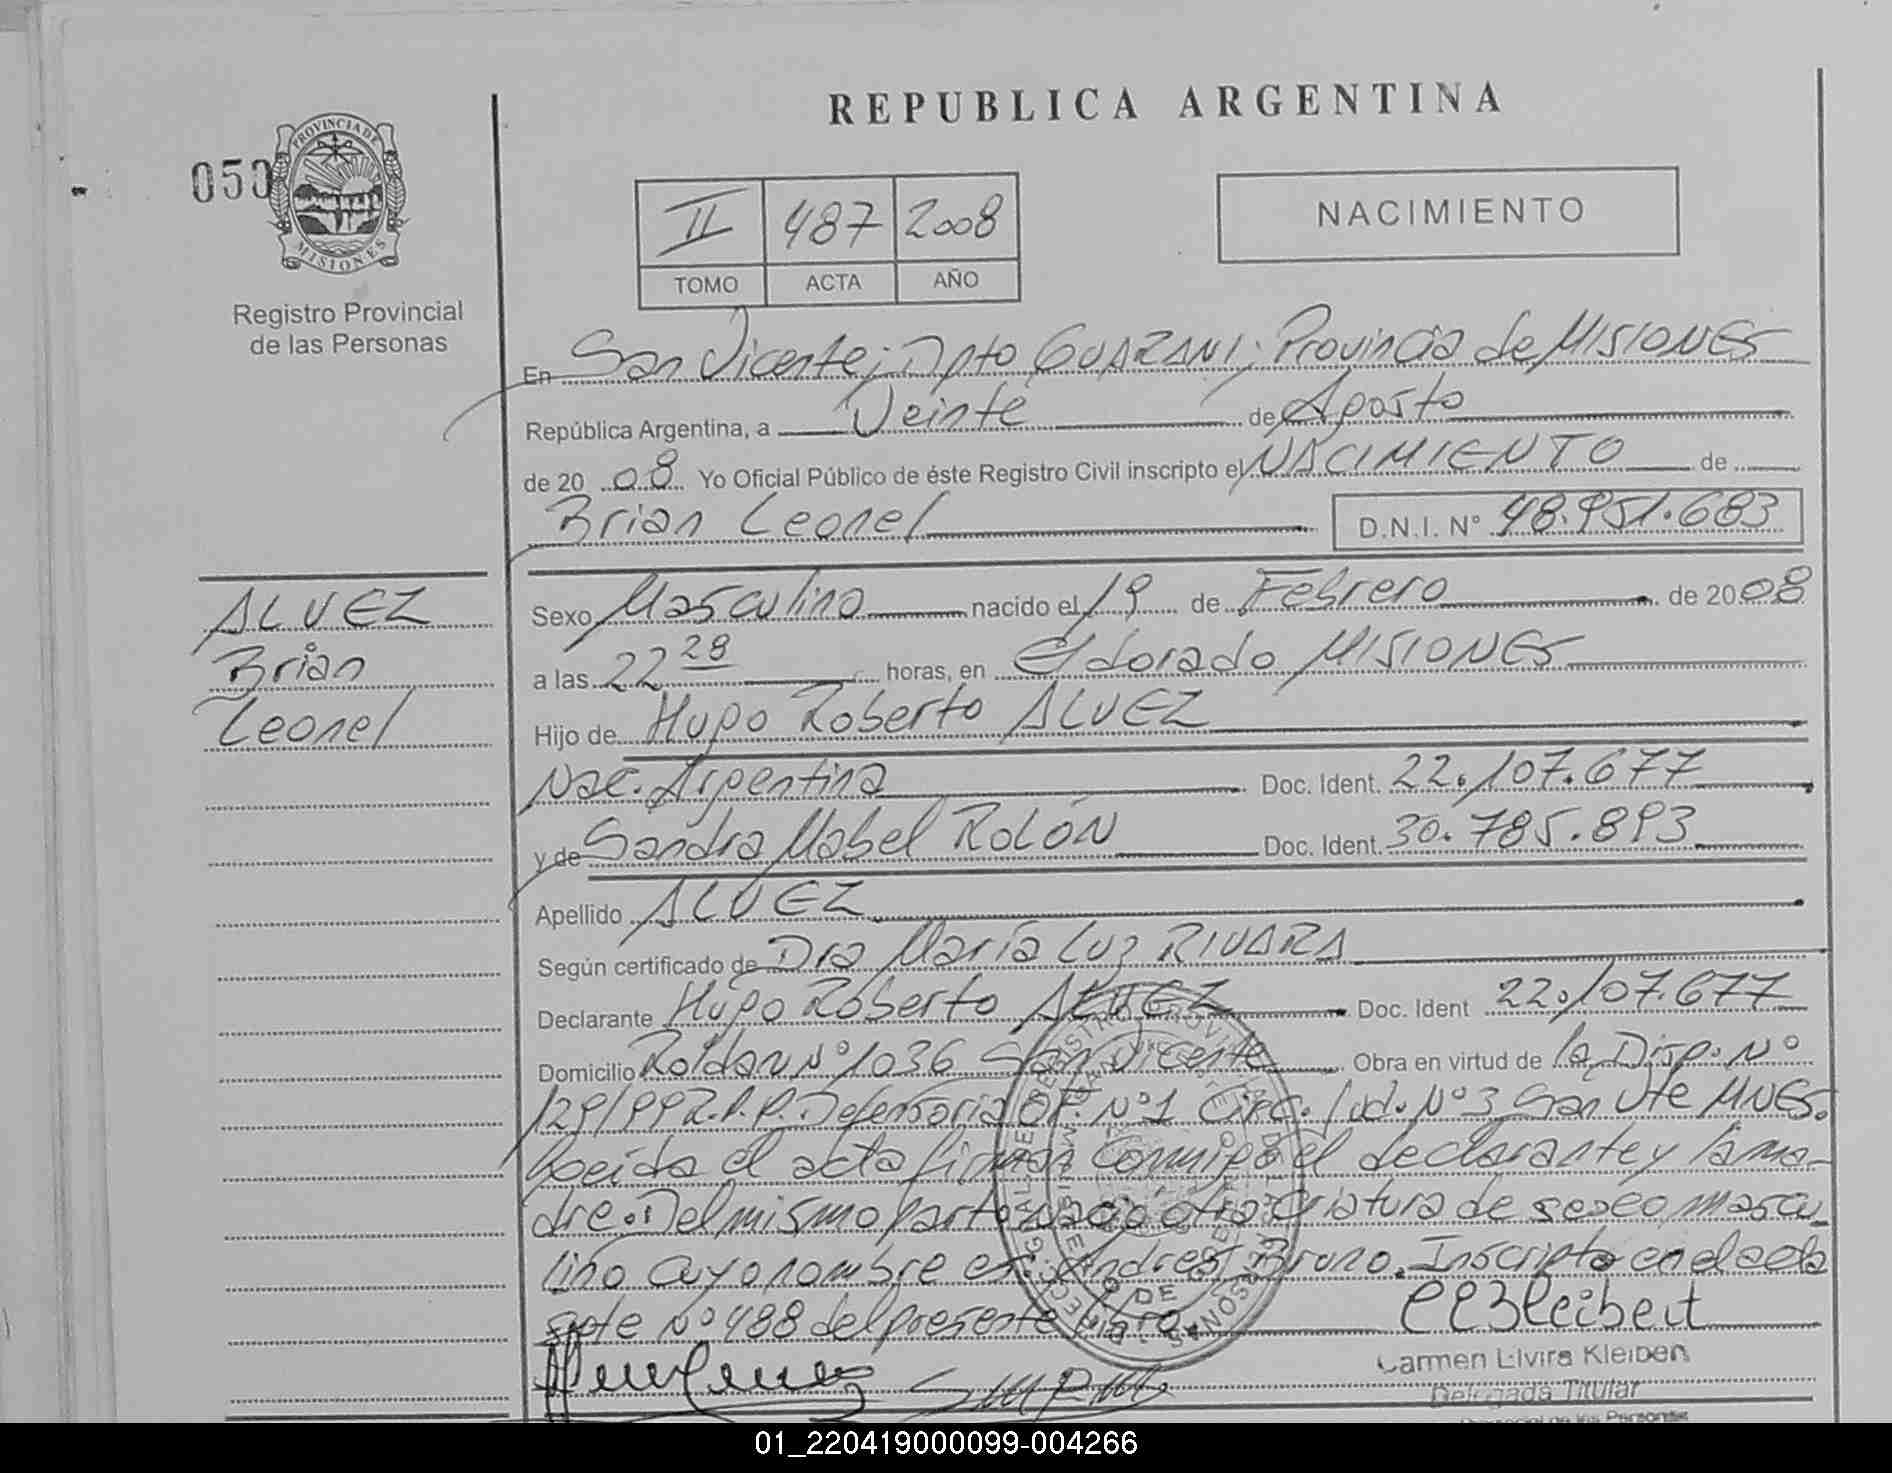 REPUBLICA ARGENTINA
050
PROVINCIA DE
MISIONES
Registro Provincial
de las Personas
II 487 2008
TOMO ACTA AÑO
NACIMIENTO
En San Vicente; Dpto GUARANI; Provincia de MISIONES
República Argentina, a Veinte de Agosto
de 20 08 Yo Oficial Público de éste Registro Civil inscripto el NACIMIENTO de
Brian Leonel D.N.I. Nº 48.951.683
ALVEZ
Brian
Leonel
Sexo Masculino nacido el 19 de Febrero de 2008
a las 22 28 horas, en Eldorado MISIONES
Hijo de Hugo Roberto ALVEZ
Nac. Argentina Doc. Ident. 22.107.677
y de Sandra Mabel ROLÓN Doc. Ident. 30.785.893
Apellido ALVEZ
Según certificado de Dra María Luz RIVARA
Declarante Hugo Roberto ALVEZ Doc. Ident 22.107.677
Domicilio Roldan Nº 1036 San Vicente Obra en virtud de la Disp. Nº
129/99 R.P.P. Defensoria Of. Nº1 Circ. Jud. Nº3 San Vte MNES.
Leída el acta firman conmigo el declarante y la ma-
dre. Del mismo parto nació otra criatura de sexo mascu-
lino cuyo nombre es: Andres Bruno. Inscripto en el acta
sgte Nº 488 del presente libro.
Carmen Elvira Kleibert
Delegada Titular
de las Personas
01_220419000099-004266